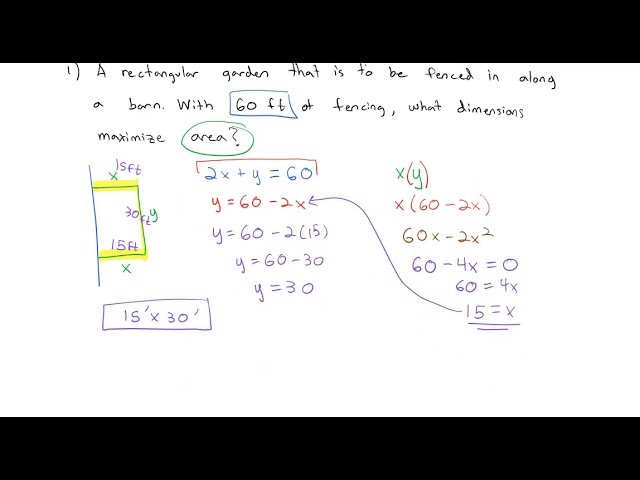 1) A rectangular garden that is to be fenced in along
a barn. With 60 ft of fencing, what dimensions
maximize area?
15ft
x
30ft y
15ft
x
15' x 30'
2x + y = 60
y = 60 - 2x
y = 60 - 2(15)
y = 60 - 30
y = 30
x(y)
x(60 - 2x)
60x - 2x²
60 - 4x = 0
60 = 4x
15 = x